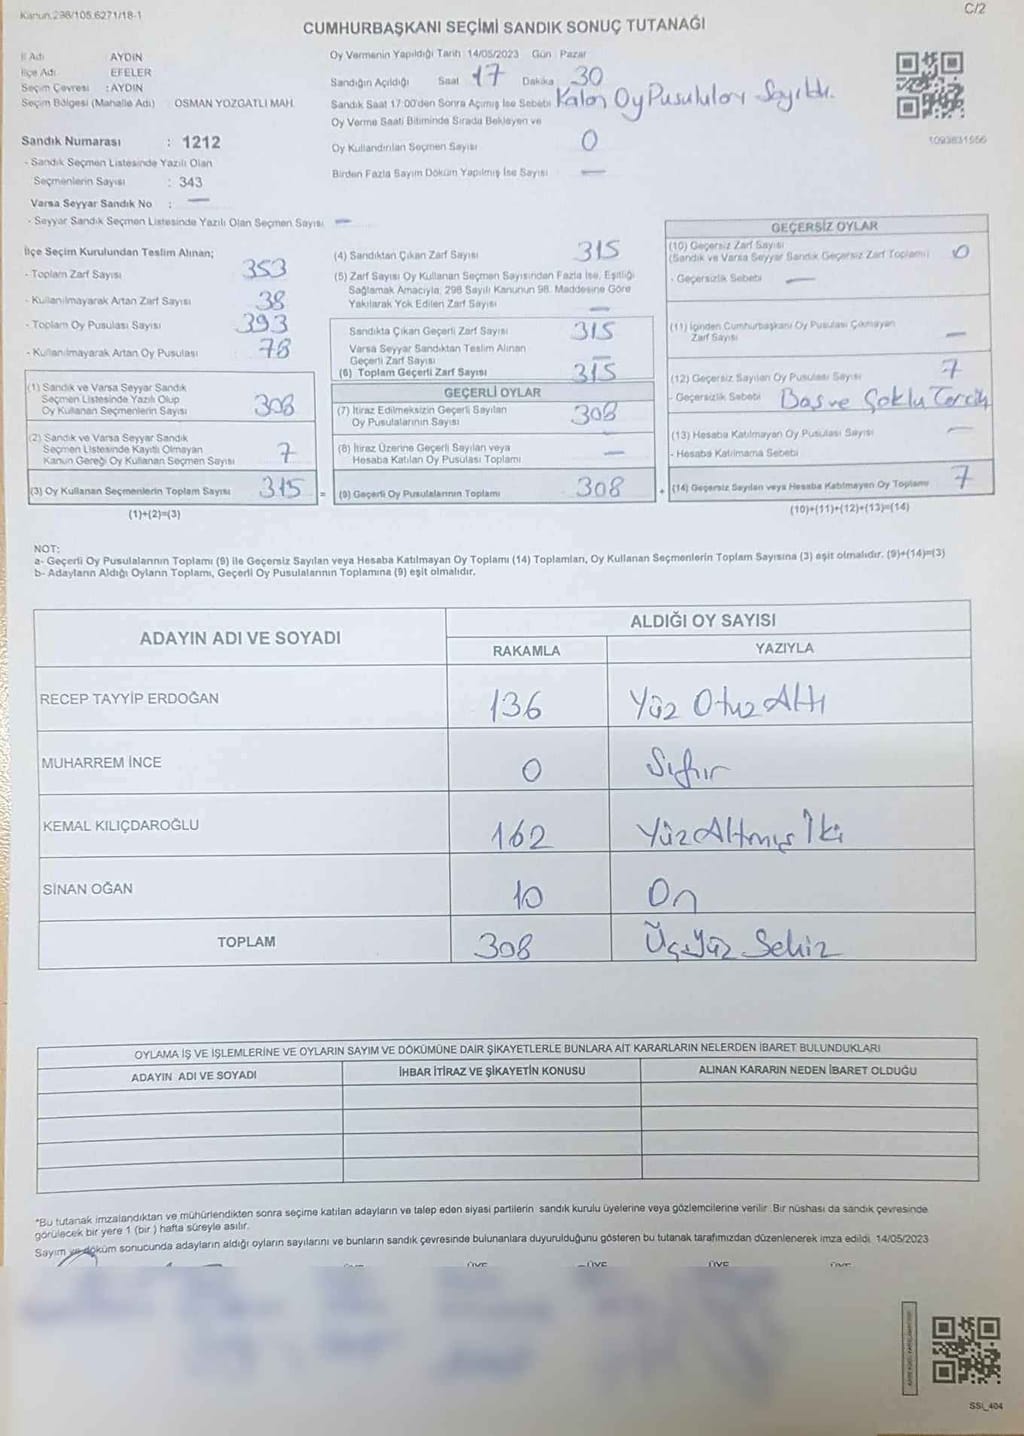 Kanun.298/105.6271/18-1
C/2
CUMHURBAŞKANI SEÇİMİ SANDIK SONUÇ TUTANAĞI
İl Adı AYDIN
İlçe Adı EFELER
Seçim Çevresi : AYDIN
Seçim Bölgesi (Mahalle Adı) OSMAN YOZGATLI MAH.
Sandık Numarası : 1212
- Sandık Seçmen Listesinde Yazılı Olan
Seçmenlerin Sayısı : 343
Varsa Seyyar Sandık No : —
- Seyyar Sandık Seçmen Listesinde Yazılı Olan Seçmen Sayısı —
Oy Vermenin Yapıldığı Tarih 14/05/2023 Gün Pazar
Sandığın Açıldığı Saat 17 Dakika 30
Sandık Saat 17:00'den Sonra Açımış İse Sebebi Kalan Oy Pusulaları Sayıldı.
Oy Verme Saati Bitiminde Sırada Bekleyen ve
Oy Kullandırılan Seçmen Sayısı 0
Birden Fazla Sayım Döküm Yapılmış İse Sayısı —
1093831556
İlçe Seçim Kurulundan Teslim Alınan;
- Toplam Zarf Sayısı 353
- Kullanılmayarak Artan Zarf Sayısı 38
- Toplam Oy Pusulası Sayısı 393
- Kullanılmayarak Artan Oy Pusulası 78
(1) Sandık ve Varsa Seyyar Sandık
Seçmen Listesinde Yazılı Olup
Oy Kullanan Seçmenlerin Sayısı 308
(2) Sandık ve Varsa Seyyar Sandık
Seçmen Listesinde Kayıtlı Olmayan
Kanun Gereği Oy Kullanan Seçmen Sayısı 7
(3) Oy Kullanan Seçmenlerin Toplam Sayısı 315 =
(1)+(2)=(3)
(4) Sandıktan Çıkan Zarf Sayısı 315
(5) Zarf Sayısı Oy Kullanan Seçmen Sayısından Fazla İse, Eşitliği
Sağlamak Amacıyla, 298 Sayılı Kanunun 98. Maddesine Göre
Yakılarak Yok Edilen Zarf Sayısı —
Sandıkta Çıkan Geçerli Zarf Sayısı 315
Varsa Seyyar Sandıktan Teslim Alınan
Geçerli Zarf Sayısı —
(6) Toplam Geçerli Zarf Sayısı 315
GEÇERLİ OYLAR
(7) İtiraz Edilmeksizin Geçerli Sayılan
Oy Pusulalarının Sayısı 308
(8) İtiraz Üzerine Geçerli Sayılan veya
Hesaba Katılan Oy Pusulası Toplamı —
(9) Geçerli Oy Pusulalarının Toplamı 308 +
GEÇERSİZ OYLAR
(10) Geçersiz Zarf Sayısı
(Sandık ve Varsa Seyyar Sandık Geçersiz Zarf Toplamı) 0
- Geçersizlik Sebebi —
(11) İçinden Cumhurbaşkanı Oy Pusulası Çıkmayan
Zarf Sayısı —
(12) Geçersiz Sayılan Oy Pusulası Sayısı 7
- Geçersizlik Sebebi Boş ve Çoklu Tercih
(13) Hesaba Katılmayan Oy Pusulası Sayısı —
- Hesaba Katılmama Sebebi
(14) Geçersiz Sayılan veya Hesaba Katılmayan Oy Toplamı 7
(10)+(11)+(12)+(13)=(14)
NOT:
a- Geçerli Oy Pusulalarının Toplamı (9) ile Geçersiz Sayılan veya Hesaba Katılmayan Oy Toplamı (14) Toplamları, Oy Kullanan Seçmenlerin Toplam Sayısına (3) eşit olmalıdır. (9)+(14)=(3)
b- Adayların Aldığı Oyların Toplamı, Geçerli Oy Pusulalarının Toplamına (9) eşit olmalıdır.
ADAYIN ADI VE SOYADI
ALDIĞI OY SAYISI
RAKAMLA YAZIYLA
RECEP TAYYİP ERDOĞAN 136 Yüz Otuz Altı
MUHARREM İNCE 0 Sıfır
KEMAL KILIÇDAROĞLU 162 Yüz Altmış İki
SİNAN OĞAN 10 On
TOPLAM 308 Üç Yüz Sekiz
OYLAMA İŞ VE İŞLEMLERİNE VE OYLARIN SAYIM VE DÖKÜMÜNE DAİR ŞİKAYETLERLE BUNLARA AİT KARARLARIN NELERDEN İBARET BULUNDUKLARI
ADAYIN ADI VE SOYADI İHBAR İTİRAZ VE ŞİKAYETİN KONUSU ALINAN KARARIN NEDEN İBARET OLDUĞU
*Bu tutanak imzalandıktan ve mühürlendikten sonra seçime katılan adayların ve talep eden siyasi partilerin sandık kurulu üyelerine veya gözlemcilerine verilir. Bir nüshası da sandık çevresinde
görülecek bir yere 1 (bir ) hafta süreyle asılır.
Sayım ve döküm sonucunda adayların aldığı oyların sayılarını ve bunların sandık çevresinde bulunanlara duyurulduğunu gösteren bu tutanak tarafımızdan düzenlenerek imza edildi. 14/05/2023
ÜYE ÜYE ÜYE
SSL_404